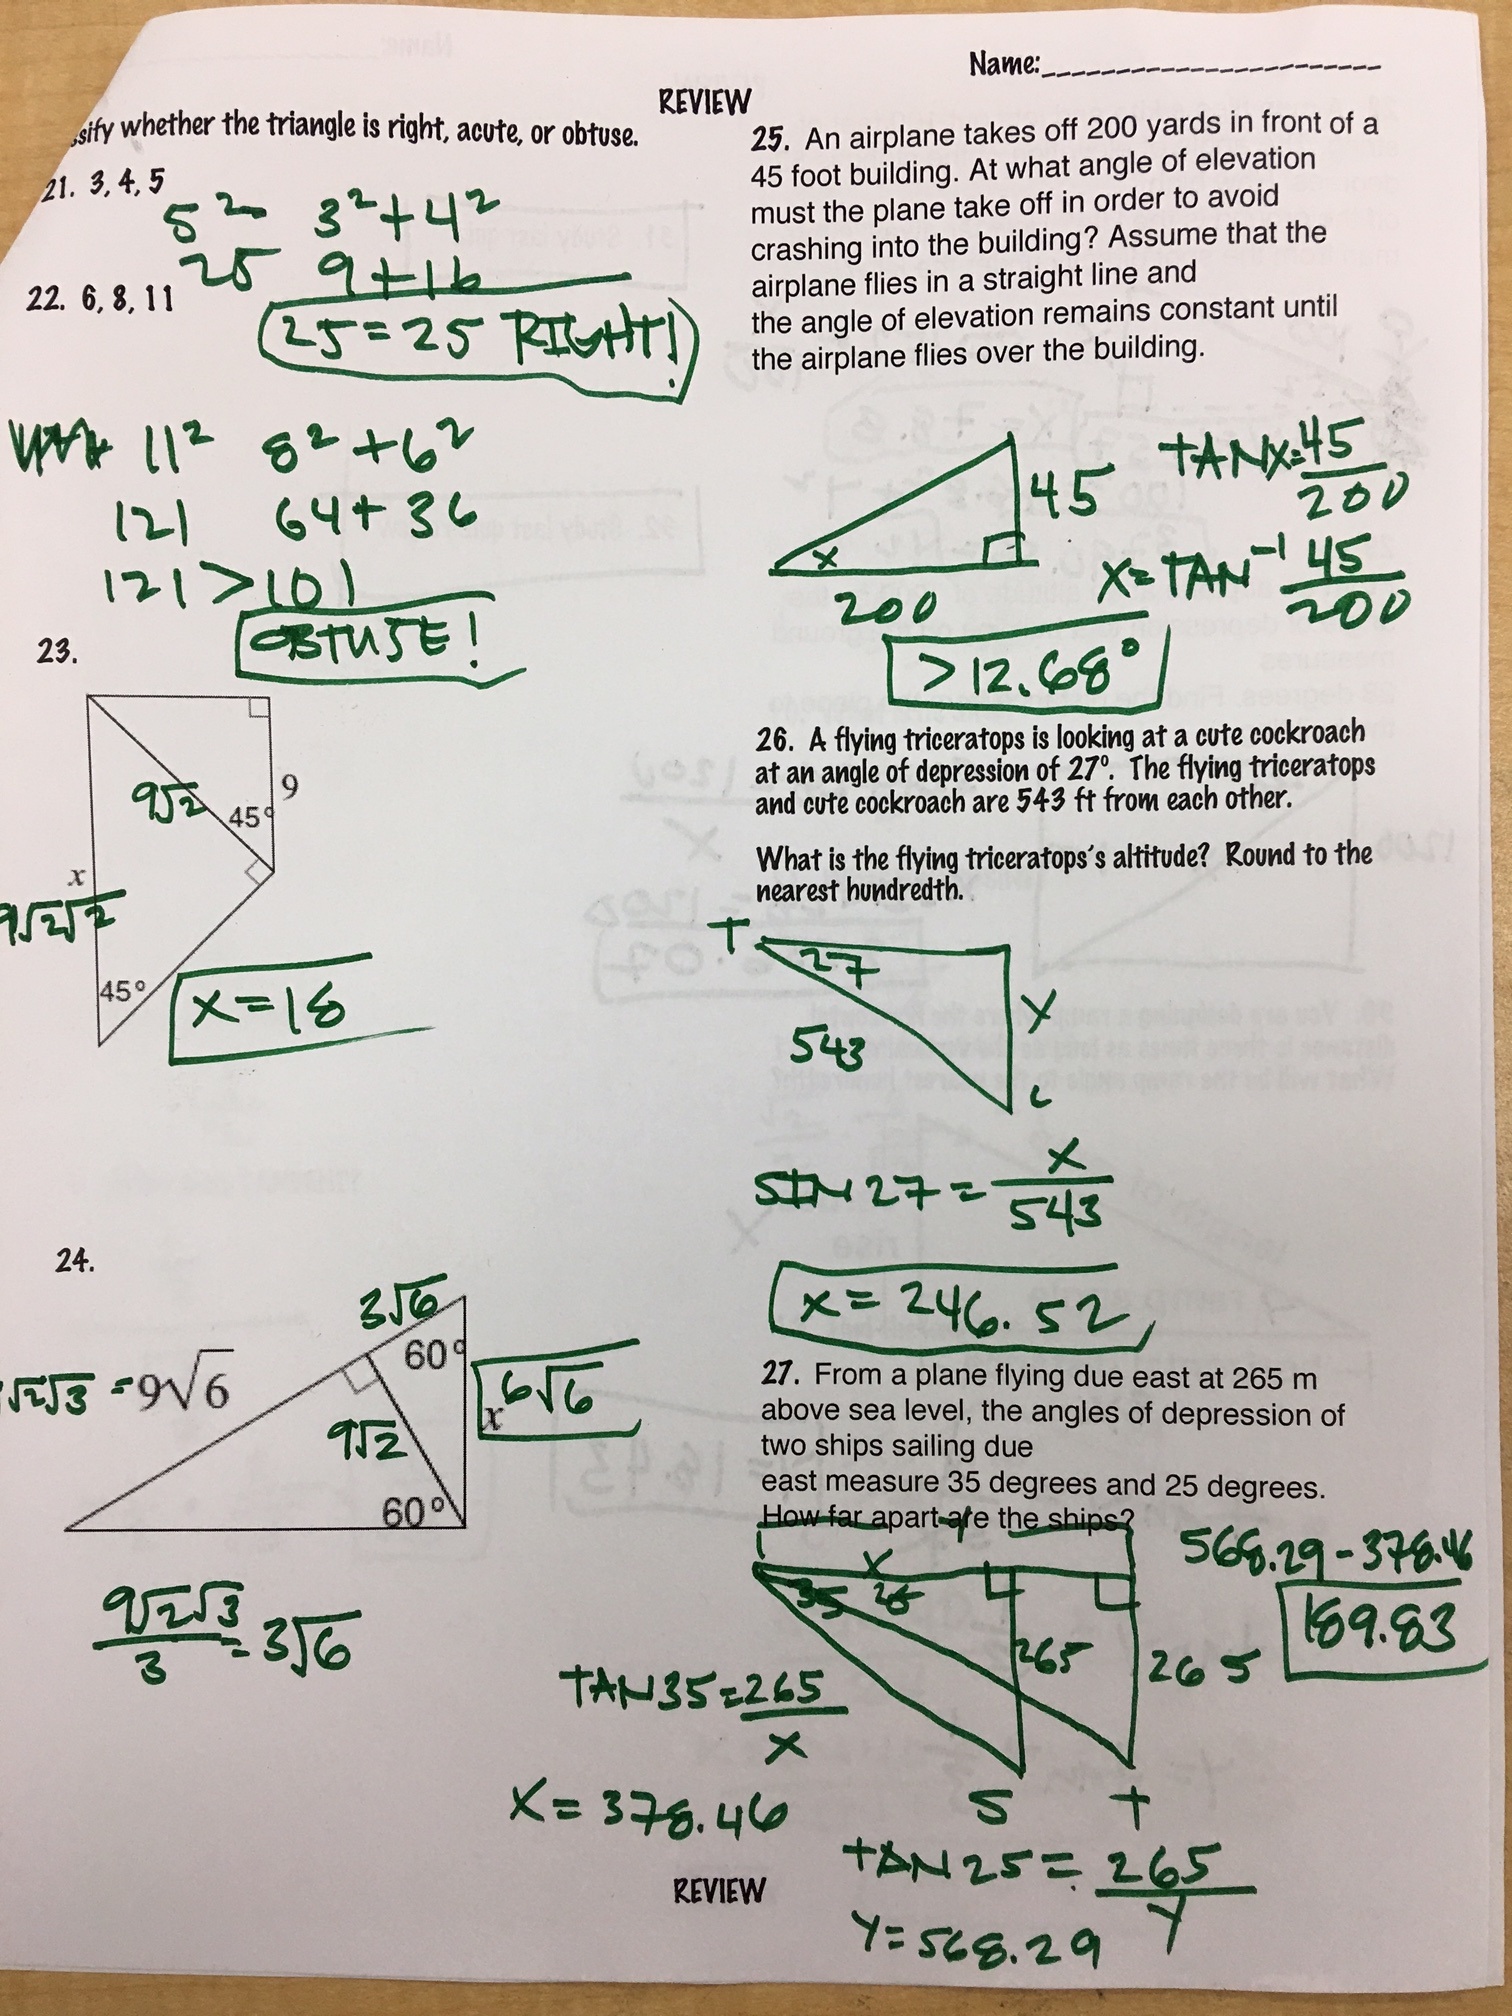 Name:
REVIEW
sify whether the triangle is right, acute, or obtuse.
21. 3, 4, 5
5² 3²+4²
25 9+16
25=25 RIGHT!
22. 6, 8, 11
11² 8²+6²
121 64+36
121>101
OBTUSE!
23.
9√2
45°
9
x
9√2√2
45°
x=18
24.
3√6
60°
√2√3 = 9√6
6√6
x
9√2
60°
9√2√3 / 3 = 3√6
25. An airplane takes off 200 yards in front of a
45 foot building. At what angle of elevation
must the plane take off in order to avoid
crashing into the building? Assume that the
airplane flies in a straight line and
the angle of elevation remains constant until
the airplane flies over the building.
TANX=45/200
45
x
200
X=TAN⁻¹ 45/200
>12.68°
26. A flying triceratops is looking at a cute cockroach
at an angle of depression of 27°. The flying triceratops
and cute cockroach are 543 ft from each other.
What is the flying triceratops's altitude? Round to the
nearest hundredth.
T
27
X
543
C
SIN27 = X/543
x = 246.52
27. From a plane flying due east at 265 m
above sea level, the angles of depression of
two ships sailing due
east measure 35 degrees and 25 degrees.
How far apart are the ships?
Y
568.29-378.46
X
35 25
189.83
265
265
TAN35=265/X
X=378.46
S T
TAN25=265/Y
Y=568.29
REVIEW